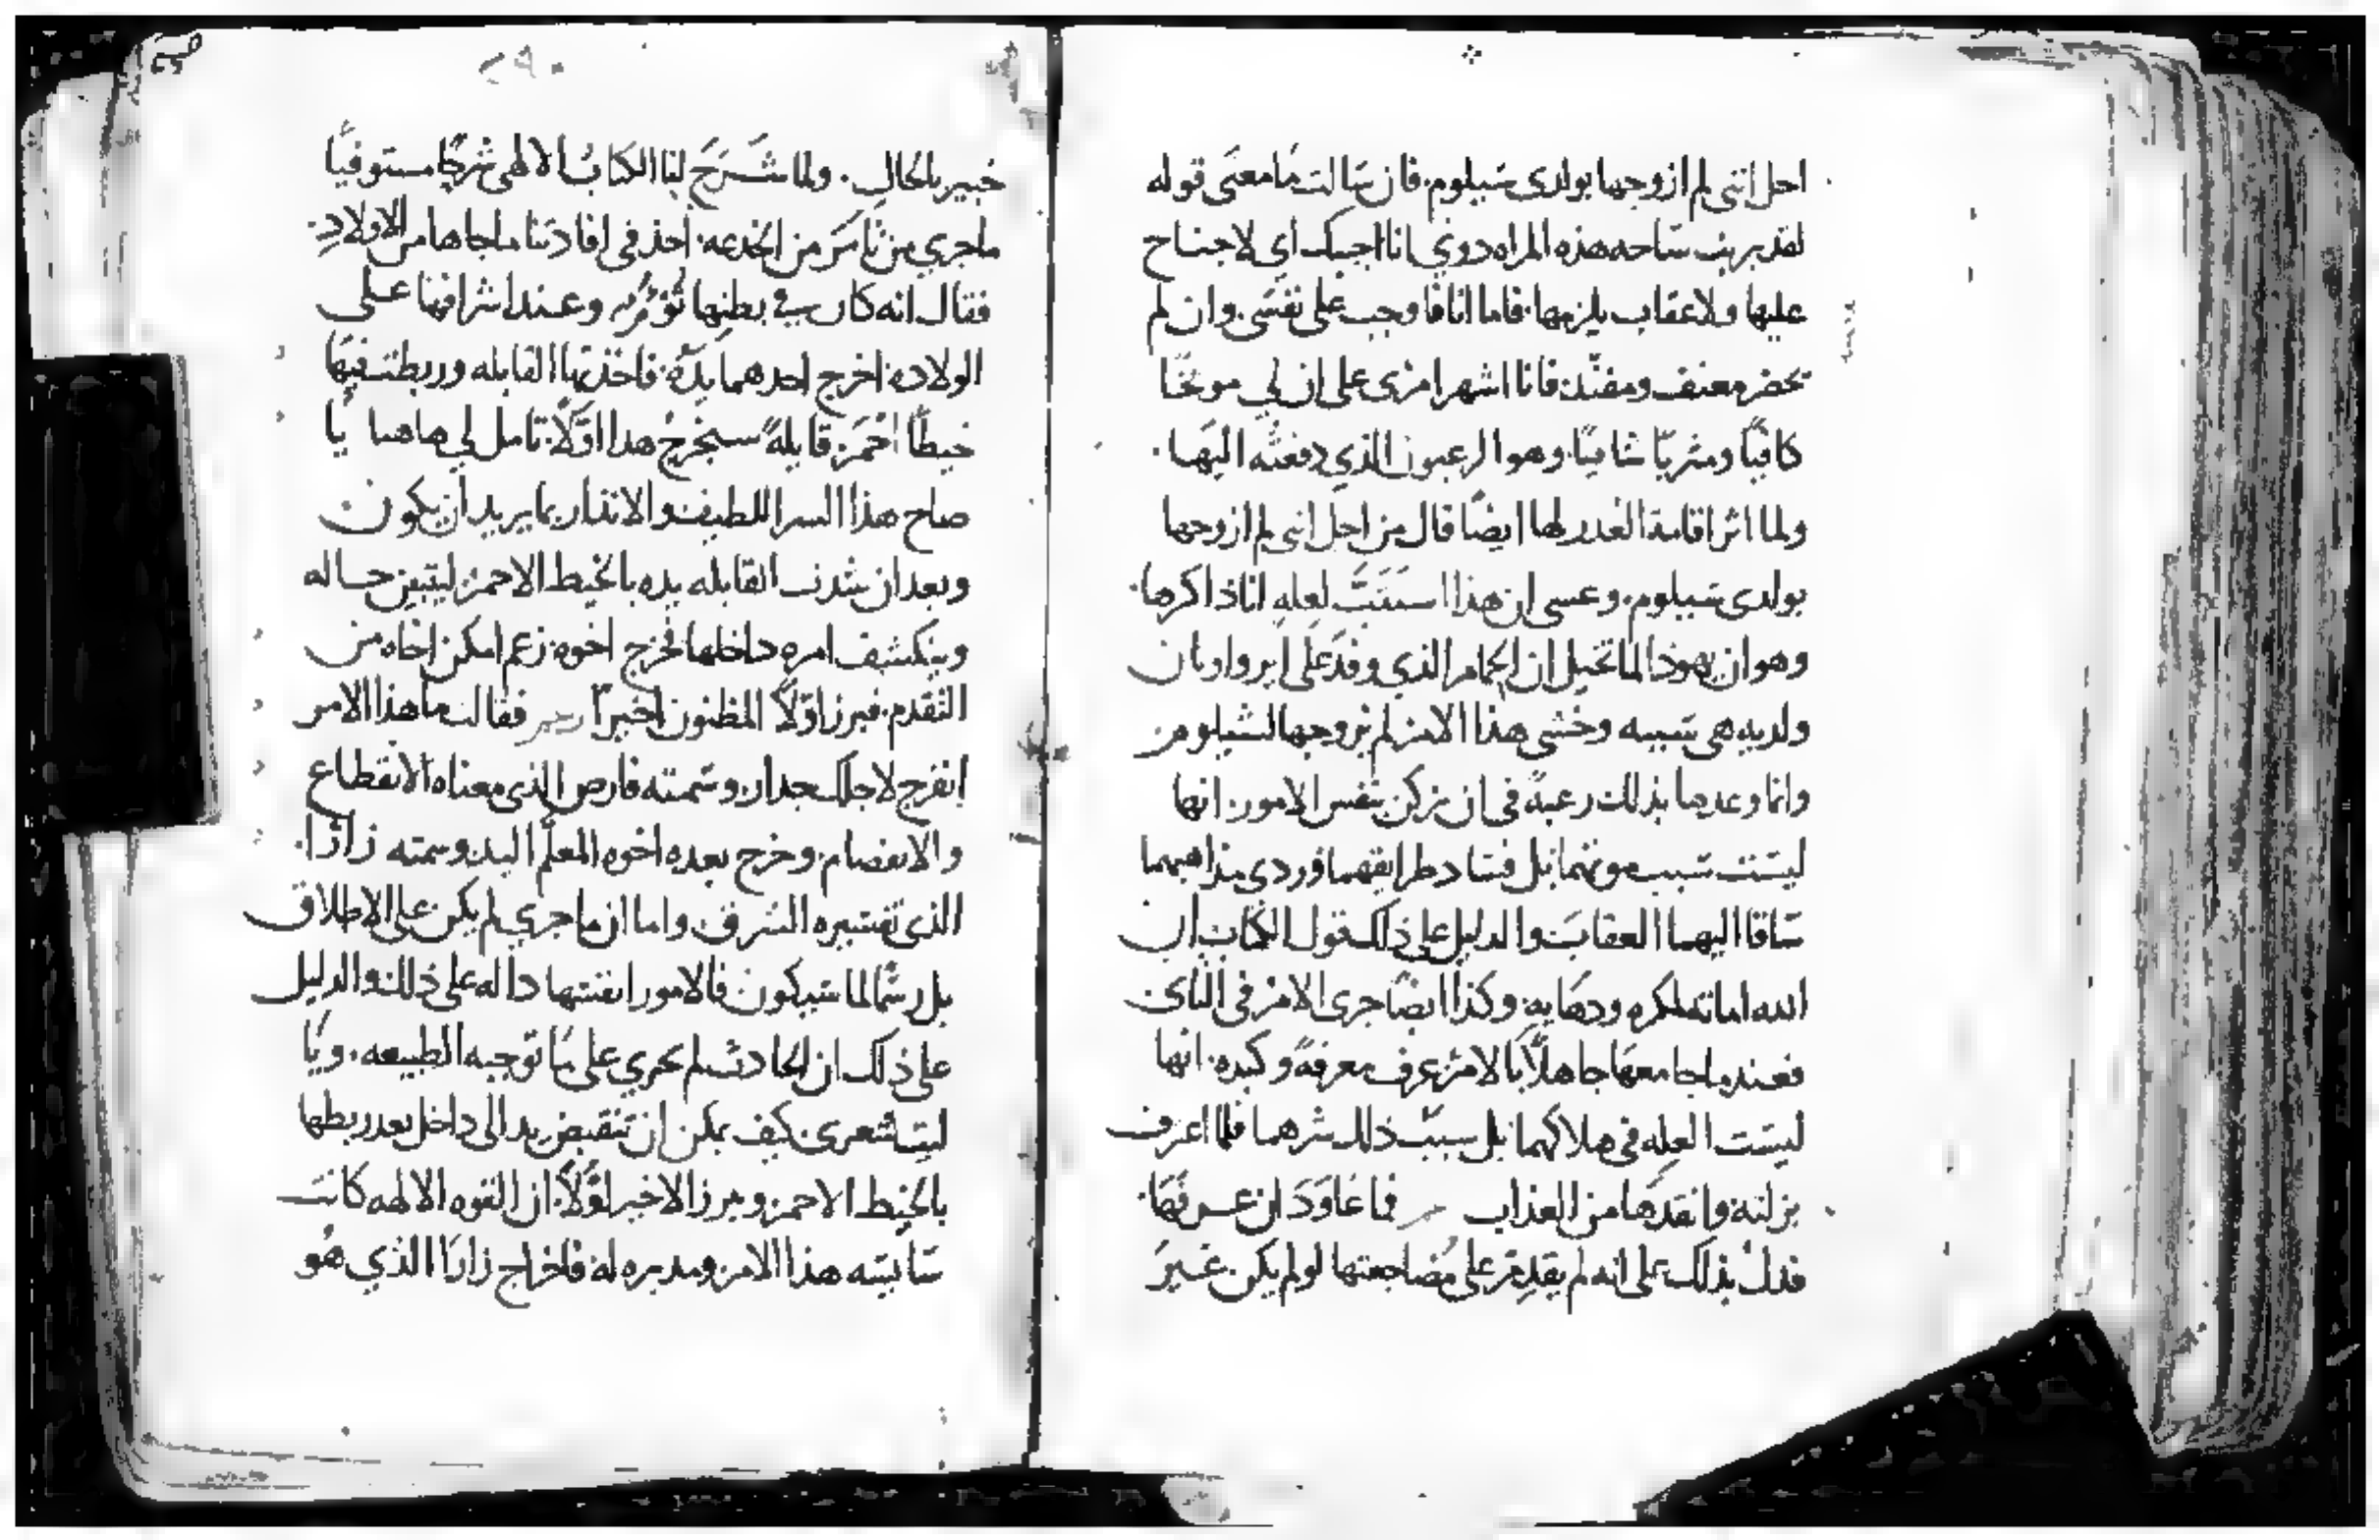 اجل انني لم ازوجها بولدى شيلوم. فان سالت ما معنى قوله
لقد بريت ساحه هذه المراه دوني انا اجيبك اي لا جناح
عليها ولا عقاب يلزمها. فاما انا فاوجب على نفسى. وان لم
يحضر معنف ومفند. فانا اشهر امرى على ان لي موبخا
كافيا شافيا. وهو الرعبون الذي دفعته اليها.
ولما اثر اقامة العدر لها ايضا قال من اجل انى لم ازوجها
بولدى شيلوم. وعسى ان هذا لعله انا ذاكرها.
وهو ان يهوذا لما تخيل ان الحمام الذي وفد على اير واونان
ولديه هى سببه وخشى هذا الامر لم يزوجها لشيلوم
وانما وعدها بذلك رغبة فى ان بنفس الامور. انها
ليست سبب موتهما بل فساد طرايقهما وردي مذاهبهما
ساقا اليهما العقاب. والدليل على ذلك قول الكتاب ان
الله اماته لمكره ودهايه. وكذا ايضا جرى الامر فى الثانى
فعندما جامعها جاهلا بالامر عرف معرفة وكيده. انها
ليست العله فى هلاكهما بل سبب ذلك شرهما فلما اعترف
بزلته وانقدها من العذاب فما عاود ان عرفها.
فدل بذلك على انه لم يقدم على مضاجعتها لو لم يكن غير
٢٩٠
خبير بالحال. ولما شرح لنا الكتاب الالهى شرحا مستوفيا
ماجري من ثامر من الخدعه. اخذ فى افادتنا ما جاها من الاولاد.
فقال انه كان في بطنها توم وعند اشرافها على
الولاده اخرج احدهما يده. فاخذتها القابله وربطت فيها
خيطا احمر قايلة سيخرج هدا اولا. تامل لي هاهنا يا
صاح هذا السر اللطيف والانذار بما يريد ان يكون
وبعد ان شدت القابله يده بالخيط الاحمر. ليتبين حاله
وينكشف امره داخلها فخرج اخوه. زعم امكن اخاه من
التقدم. فبرز اولا المظنون اخيرا فقالت ما هذا الامر
انفرج لاجلك جدار. وسمته فارص الذي معناه الانقطاع
والانفصام. وخرج بعده اخوه المعلم اليد. وسمته زارا.
الذى تفسيره الشرف واما ان ماجري لم يكن على الاطلاق
بل رسما لما سيكون فالامور انفسها داله على ذلك. والدليل
على ذلك ان الحادث لم يجري على ما توجبه الطبيعه. ويا
ليت شعرى كيف يمكن ان تنقبض يد الى داخل بعد ربطها
بالخيط الاحمر. ويبرز الاخير اولا. ان القوه الالهه كانت
سايسه هذا الامر ومدبره له. فاخراج زارا الذي هو